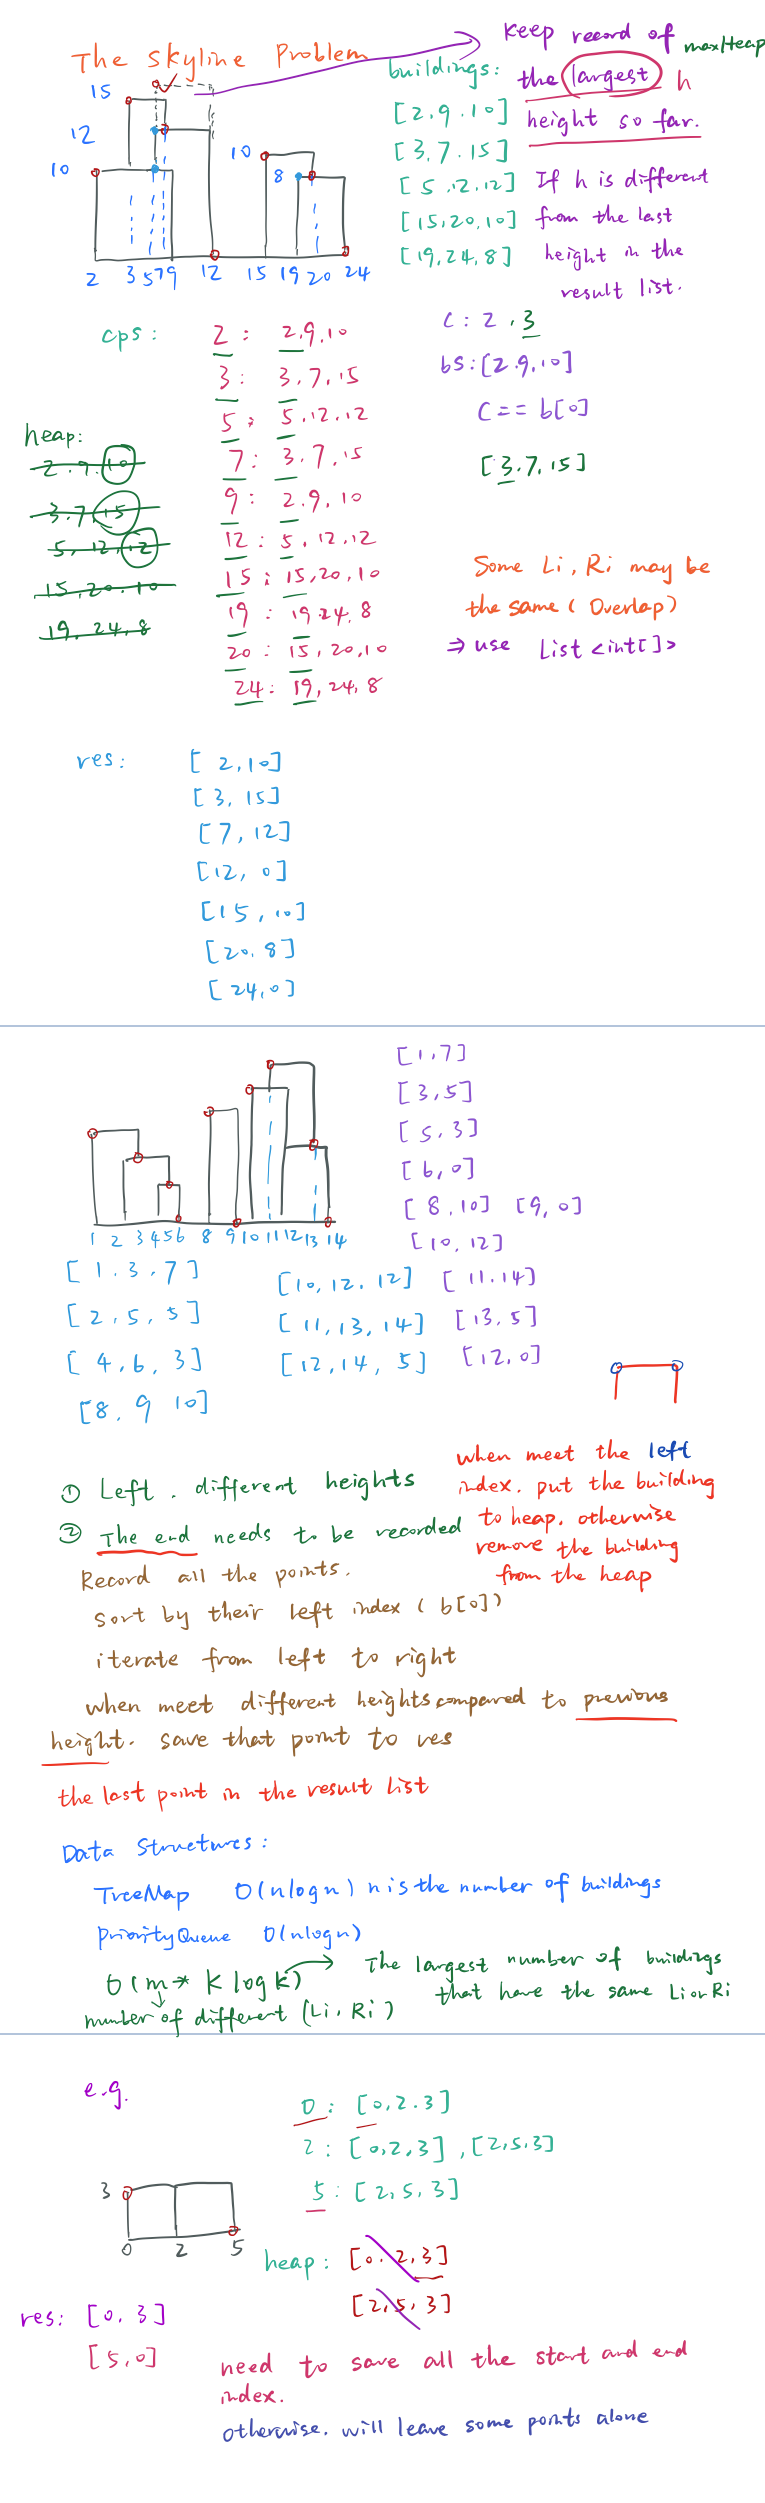 The skyline Problem
keep record of maxHeap
the largest h
height so far.
If h is different
from the last
height in the
result list.
buildings:
[2,9,10]
[3,7,15]
[5,12,12]
[15,20,10]
[19,24,8]
15
12
10
10
8
2 3 5 7 9 12 15 19 20 24
cps:
2: 2,9,10
3: 3,7,15
5: 5,12,12
7: 3,7,15
9: 2,9,10
12: 5,12,12
15: 15,20,10
19: 19,24,8
20: 15,20,10
24: 19,24,8
c: 2,3
bs: [2,9,10]
c == b[0]
[3,7,15]
heap:
2,9,10
3,7,15
5,12,12
15,20,10
19,24,8
Some Li, Ri may be
the same (Overlap)
⇒ use List<int[]>
res:
[2,10]
[3,15]
[7,12]
[12,0]
[15,10]
[20,8]
[24,0]
1 2 3 4 5 6 8 9 10 11 12 13 14
[1,7]
[3,5]
[5,3]
[6,0]
[8,10] [9,0]
[10,12]
[11,14]
[13,5]
[12,0]
[1,3,7]
[2,5,5]
[4,6,3]
[8,9 10]
[10,12,12]
[11,13,14]
[12,14,5]
① Left, different heights
② The end needs to be recorded
when meet the left
index, put the building
to heap, otherwise
remove the building
from the heap
Record all the points.
sort by their left index (b[0])
iterate from left to right
when meet different heights compared to previous
height, save that point to res
the last point in the result list
Data Structures:
TreeMap O(nlogn) n is the number of buildings
PriorityQueue O(nlogn)
O(m * K log k) → The largest number of buildings
that have the same Li or Ri
number of different (Li, Ri)
e.g.
0: [0,2,3]
2: [0,2,3], [2,5,3]
5: [2,5,3]
3
0 2 5
heap: [0,2,3]
[2,5,3]
res: [0,3]
[5,0]
need to save all the start and end
index.
otherwise, will leave some points alone